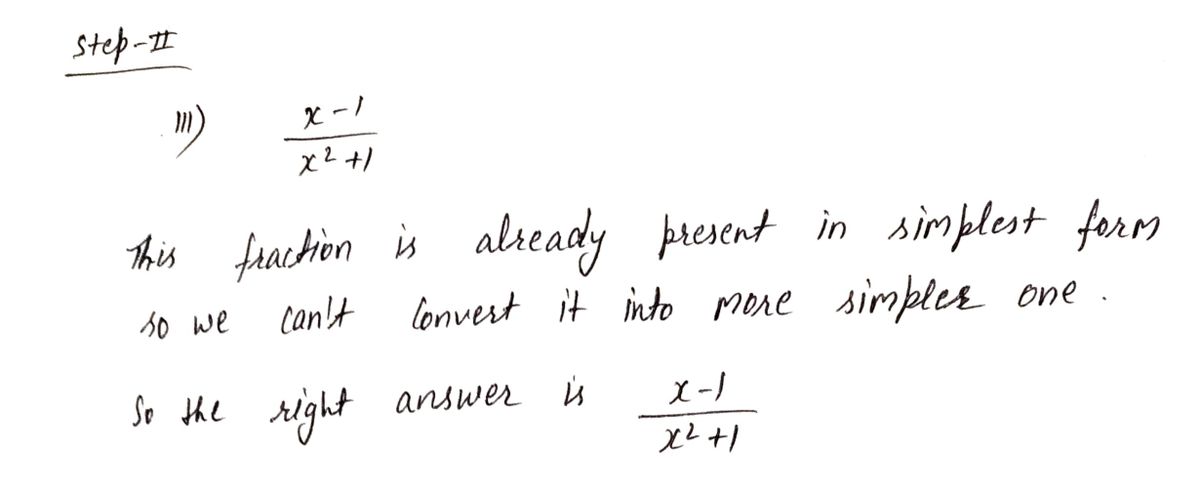 Step-II
III) x-1
x² +1
This fraction is already present in simplest form
so we can't convert it into more simpler one.
So the right answer is x-1
x² +1